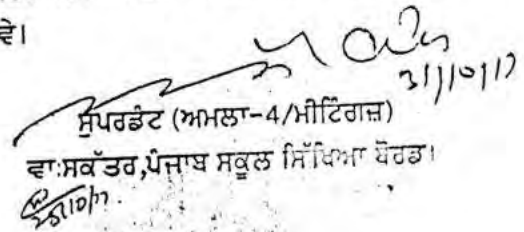 ਵੇ।
31/10/17
ਸੁਪਰਡੰਟ (ਅਮਲਾ-4/ਮੀਟਿੰਗਜ਼)
ਵਾ:ਸਕੱਤਰ,ਪੰਜਾਬ ਸਕੂਲ ਸਿੱਖਿਆ ਬੋਰਡ।